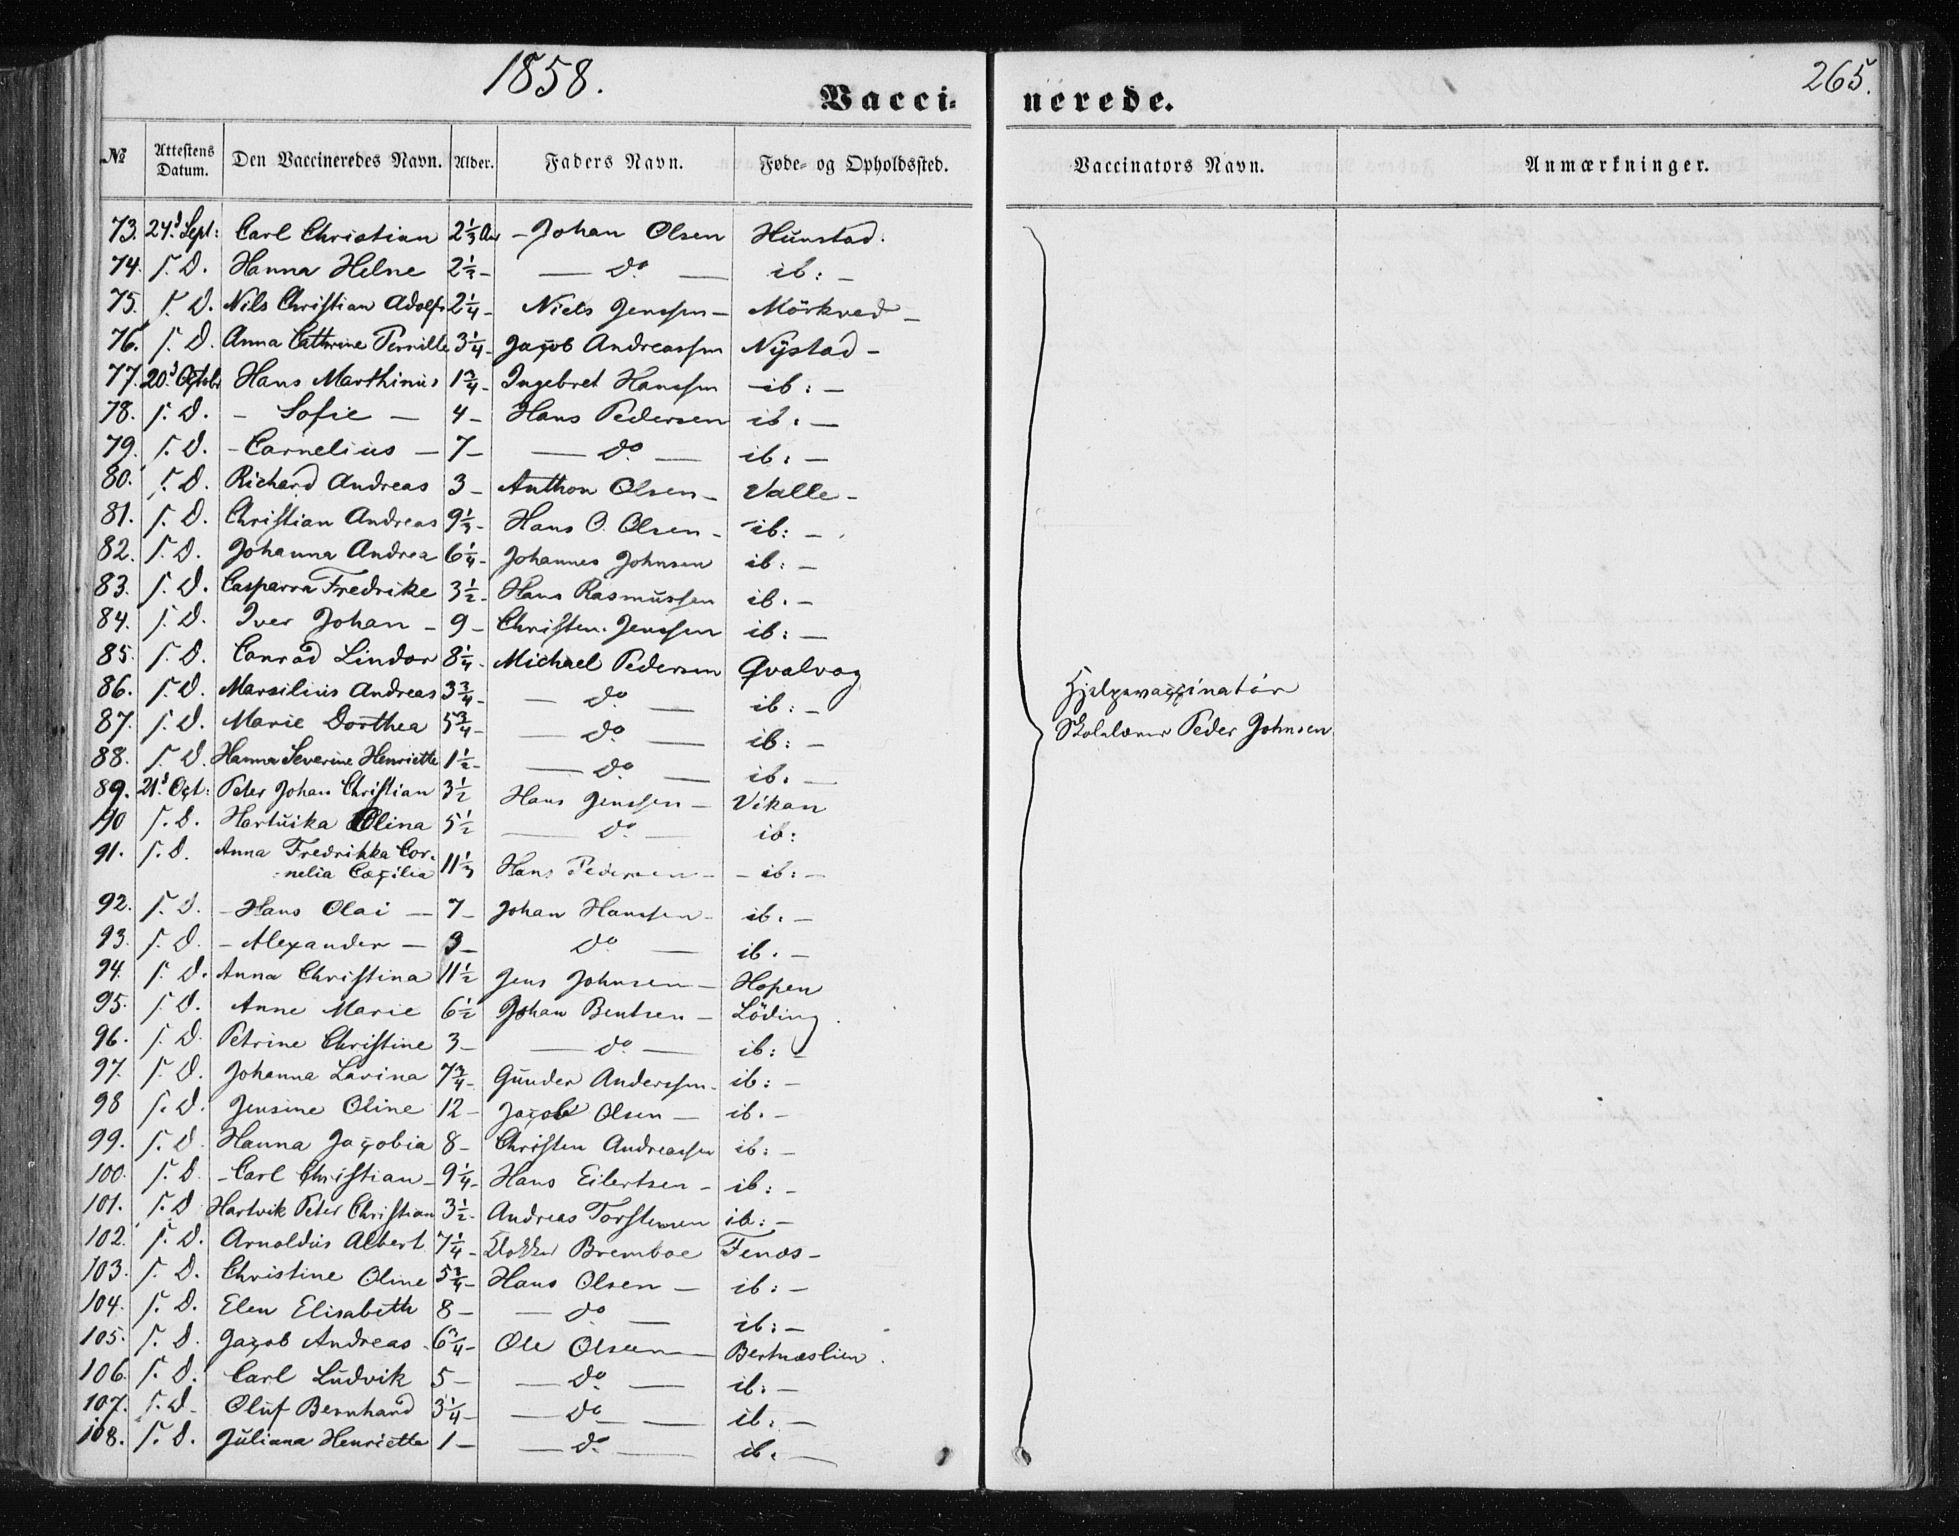 1858.
265.
Vacci-
nerede.
№ Attestens Datum. Den Vaccineredes Navn. Alder. Faders Navn. Føde- og Opholdssted. Vaccinators Navn. Anmærkninger.
73. 24d Sept: Carl Christian 2⅓ Aar - Johan Olsen Hunstad.
74. s. D. Hanna Helne 2½ - — do — ib: -
75. s. D. Nils Christian Adolf 2¼ - Niels Jenssen - Mörkved -
76. s. D. Anna Cathrine Pernille 3¼ - Jaçob Andreassen Nÿstad -
77. 20d Octobr Hans Marthinus 1¾ - Ingebret Hanssen - ib: -
78. s. D. - Sofie - 4 - Hans Pedersen ib: -
79. s. D. - Carnelius - 7 - — do — ib: -
80. s. D. Richard Andreas 3 - Anthon Olsen - Valle -
81. s. D. Christian Andreas 9⅓ - Hans O. Olsen - ib: -
82. s. D. Johanna Andrea 6¼ - Johannes Johnsen ib: -
83. s. D. Casparra Fredrike 3½ - Hans Rasmussen ib. -
84. s. D. Iver Johan - 9 - Christen Jenssen ib: -
85. s. D. Conrad Lindor 8¼ - Michael Pedersen Qvalvog
86. s. D. Marsilius Andreas 3¾ - — do — ib: -
87. s. D. Marie Dorthea 5¾ - — do — ib: -
88. s. D. Hanna Severine Henriette 1½ - — do — ib. -
89. 21d Oçt: Peter Johan Christian 3½ Hans Jenssen - Vikan
90 s. D. Hartvika Olina 5½ — do — ib:
91. s. D. Anna Fredrikka Cor-
nelia Cæçilia 11⅓ Hans Pedersen - - ib: -
92. s. D. - Hans Olai - 7 - Johan Hanssen - ib. -
93. s. D. - Alexander - 3 - do — ib. -
94. s. D. Anna Christina 11½ Jens Johnsen - Hopen
95. s. D. Anne Marie 6½ Johan Bentsen - Löding.
96. s. D. Petrine Christine 3 - — do — ib: -
97. s. D. Johanna Lavina 7¾ - Gunder Anderssen - ib: -
98 s. D. Jensine Oline 12 - Jaçob Olsen - ib. -
99. s. D. Hanna Jaçobia 8 - Christen Andreassen ib: -
100. s. D. - Carl Christian - 9¼ - Hans Eilertsen - ib: -
101. s. D. Hartvik Peter Christian 3½ - Andreas Torstensen ib: -
102. s. D. Arnoldus Albert 7¼ - Bremboe Fenæs -
103. s. D. Christine Oline 5¾ - Hans Olsen - ib: -
104. s. D. Elen Elisabeth 8 - — do — ib: -
105. s. D. Jaçob Andreas - 6¾ - Ole Olsen - Bertnæslien.
106. s. D. Carl Ludvik 5 - — do — ib: -
107. s. D. Oluf Bernhard 3¼ - — do — ib: -
108. s. D. Juliana Henriette 1 - — do — ib. -
Hjelpevaççinatör
Skolelærer Peder Johnsen